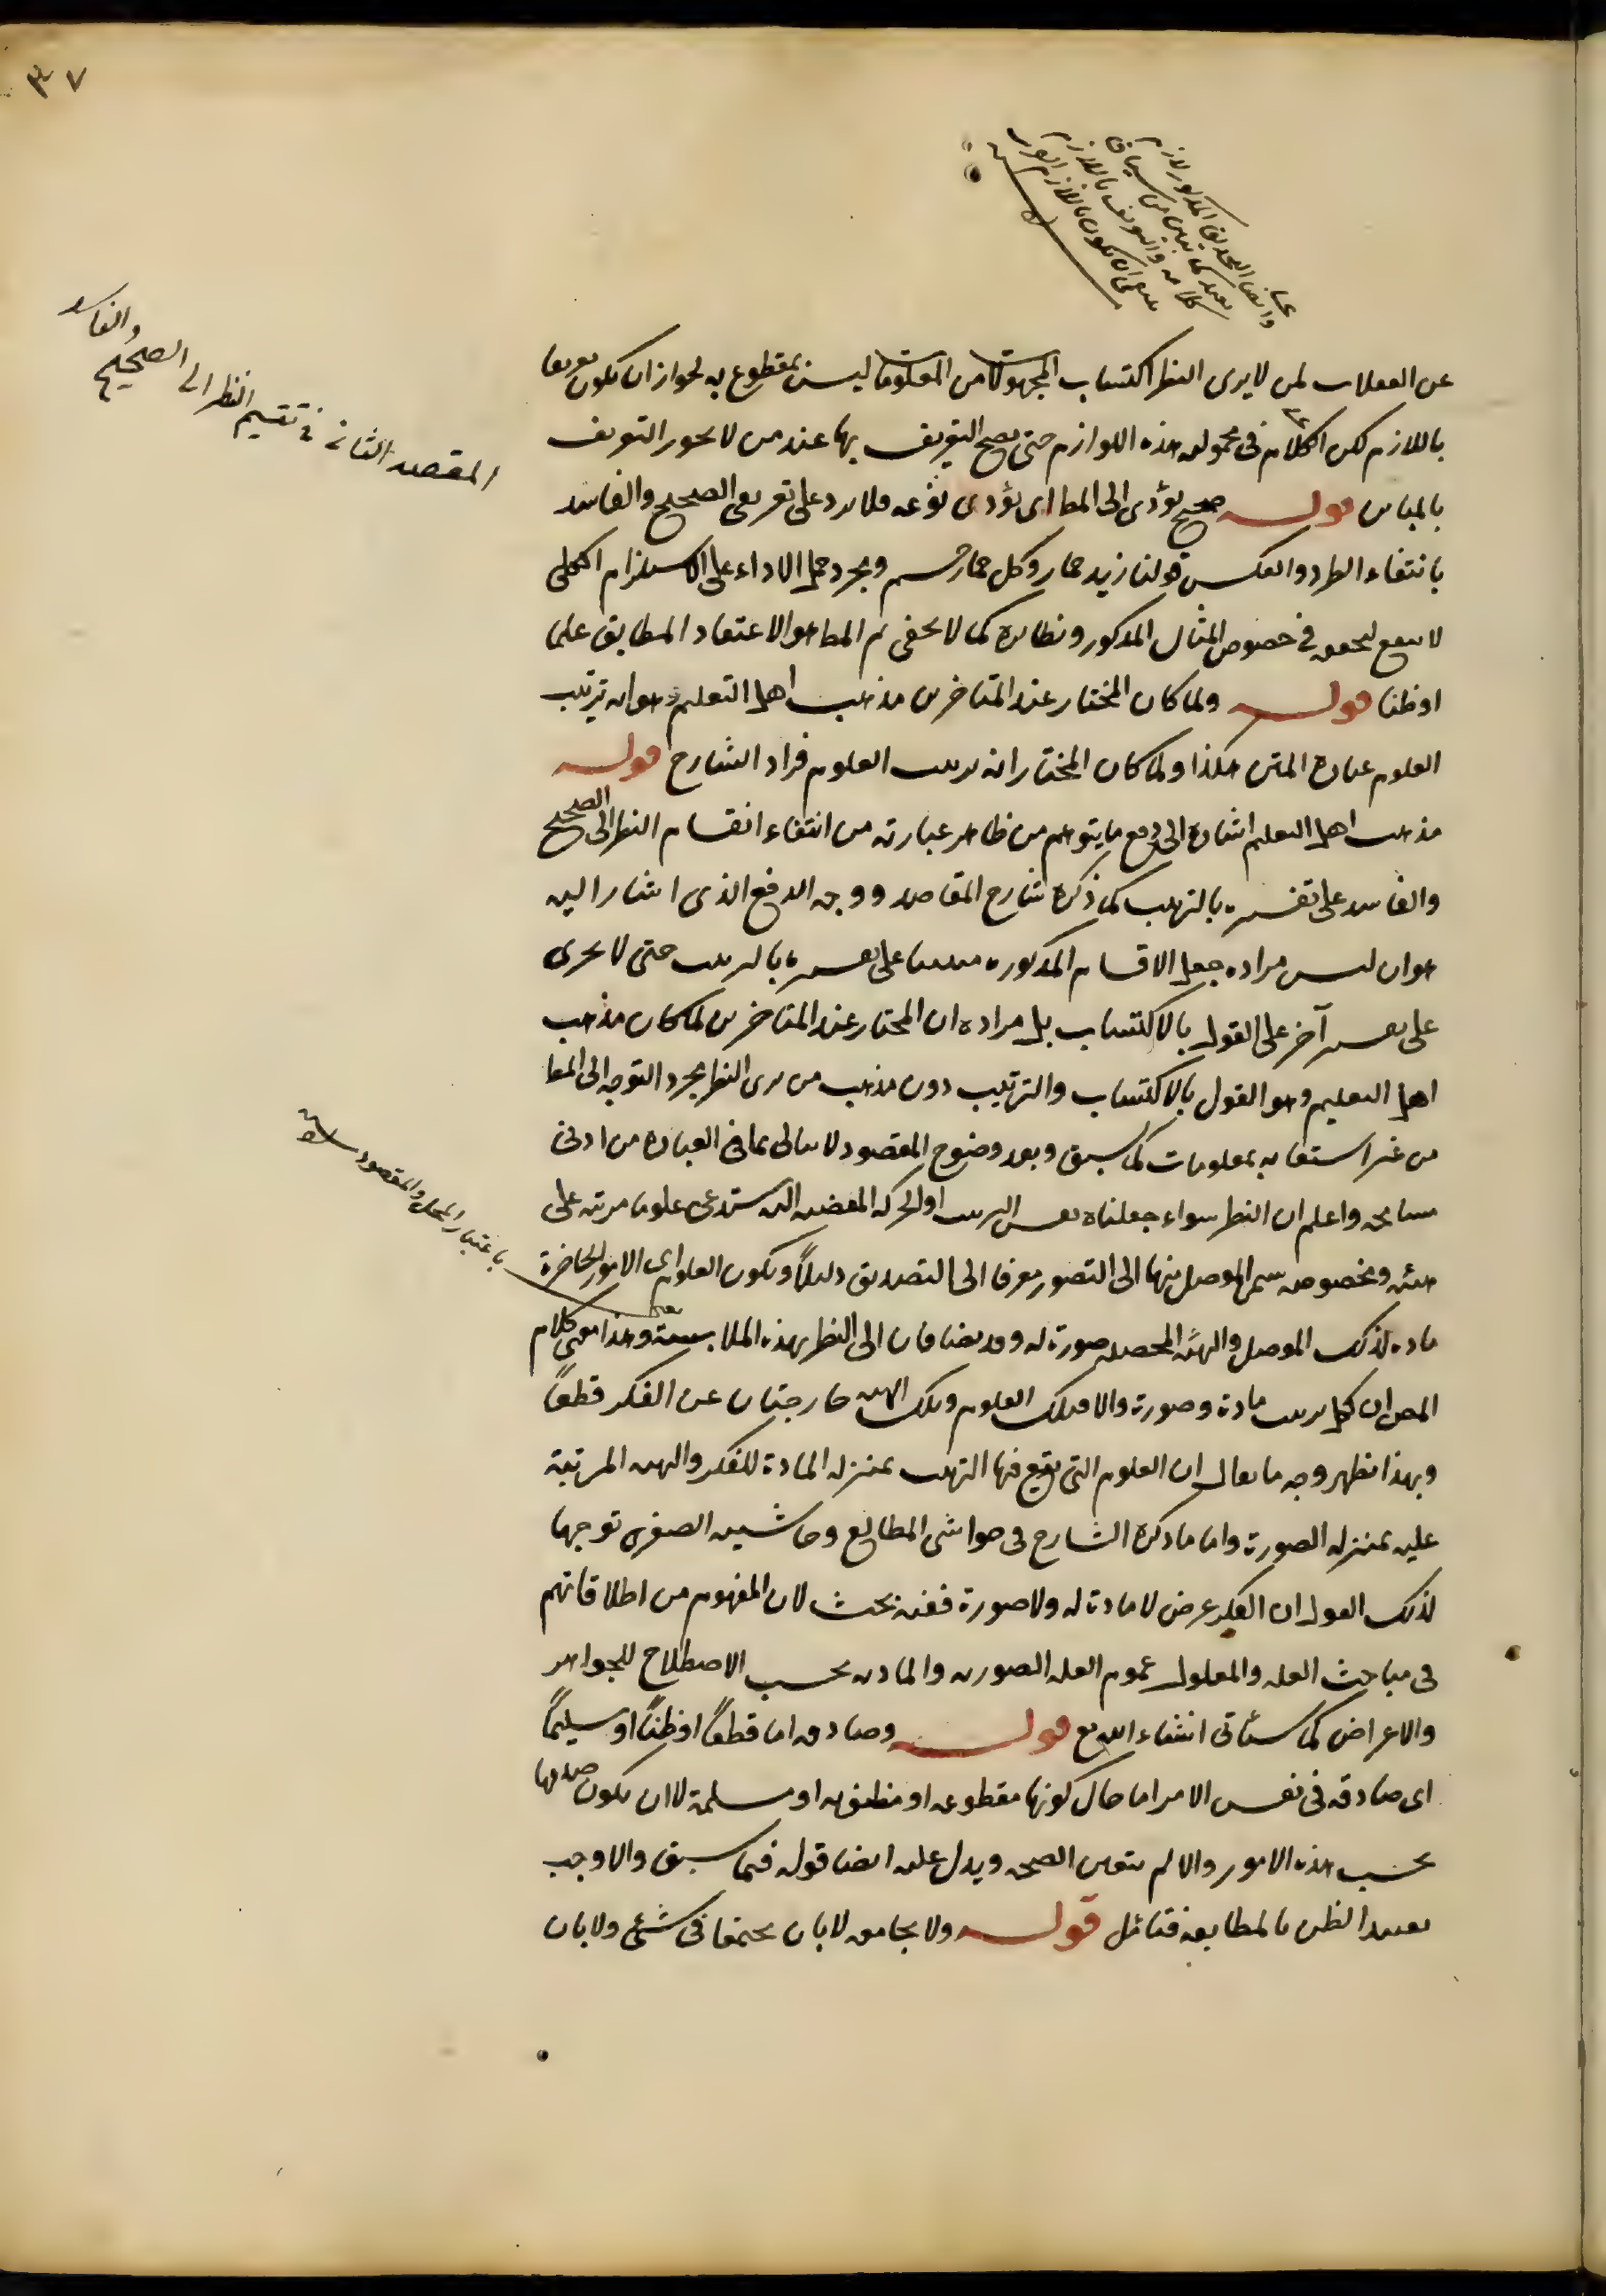 ٣٧
عن العملات لمن لا يرى النظر اكتساب المجهولات من المعلومات ليس بمقطوع به لجواز ان يكون تعريفا
باللازم لكن الكلام في محموليه هذه اللوازم حتى يصح التعريف بها عند من لا يجوز التعريف
بالمباين قوله صحيح يؤدى الى المط اى يؤدى نوعه فلا يرد على تعريفى الصحيح والفاسد
بانتفاء الطرد والعكس قولنا زيد حمار وكل حمار جسم ومجرد حمل الاداء على الاستلزام الكلى
لا ينفع لتحققه في خصوص المثال المذكور ونظائره كما لا يخفى ثم المط هو الاعتقاد المطابق علما
او ظنا قوله ولما كان المختار عند المتاخرين مذهب اهل التعليم وهو انه ترتيب
العلوم عبارة المتن هكذا ولما كان المختار انه ترتيب العلوم فزاد الشارح قوله
مذهب اهل التعليم اشارة الى دفع ما يتوهم من ظاهر عبارته من انتفاء انقسام النظر الى الصحيح
والفاسد على تفسيره بالترتيب كما ذكره شارح المقاصد ووجه الدفع الذى اشار اليه
هو ان ليس مراده جعل الاقسام المذكورة مبنيا على تفسيره بالترتيب حتى لا يجرى
على تفسير آخر على القول بالاكتساب بل مراده ان المختار عند المتاخرين لما كان مذهب
اهل التعليم وهو القول بالاكتساب والترتيب دون مذهب من يرى النظر مجرد التوجه الى المط
من غير استعانة بمعلومات كما سبق وبعد وضوح المقصود لا يبالى بما في العبارة من ادنى
مسامحة واعلم ان النظر سواء جعلناه نفس الترتيب او الحركة المفضية اليه يستدعى علوما مرتبة على
هيئة مخصوصة يسمى الموصل منها الى التصور معرفا الى التصديق دليلا ويكون العلوم اى الامور الحاضرة
مادة لذلك الموصل والهيئة المحصلة صورة له وقد يضافان الى النظر بهذه الملابسة وهذا معنى كلام
المص ان لكل ترتيب مادة وصورة والا فتلك العلوم وتلك الهيئة خارجتان عن الفكر قطعا
وبهذا يظهر وجه ما يقال ان العلوم التى يقع فيها الترتيب بمنزلة المادة للفكر والهيئة المرتبة
عليه بمنزلة الصورة واما ما ذكره الشارح في حواشى المطالع وحاشية الصغرى توجيها
لذلك القول ان الفكر عرض لا مادة له ولا صورة ففيه بحث لان المفهوم من اطلاقاتهم
في مباحث العلة والمعلول عموم العلة الصورية والمادية بحسب الاصطلاح للجواهر
والاعراض كما سيأتى انشاء الله تع قوله وصادقة اما قطعا او ظنا او تسليما
اى صادقة في نفس الامر اما حال كونها مقطوعة او مظنونة او مسلمة لا ان يكون صدقها
بحسب هذه الامور والا لم يتعين الصحة ويدل عليه ايضا قوله فيما سبق والا وجب
تقييد الظن بالمطابقة فتأمل قوله ولا يجامعه لا بان يجتمعا في شئ ولا بان
المقصد الثانى في تقسيم النظر الى الصحيح والفاسد
باعتبار المحل والمقصود